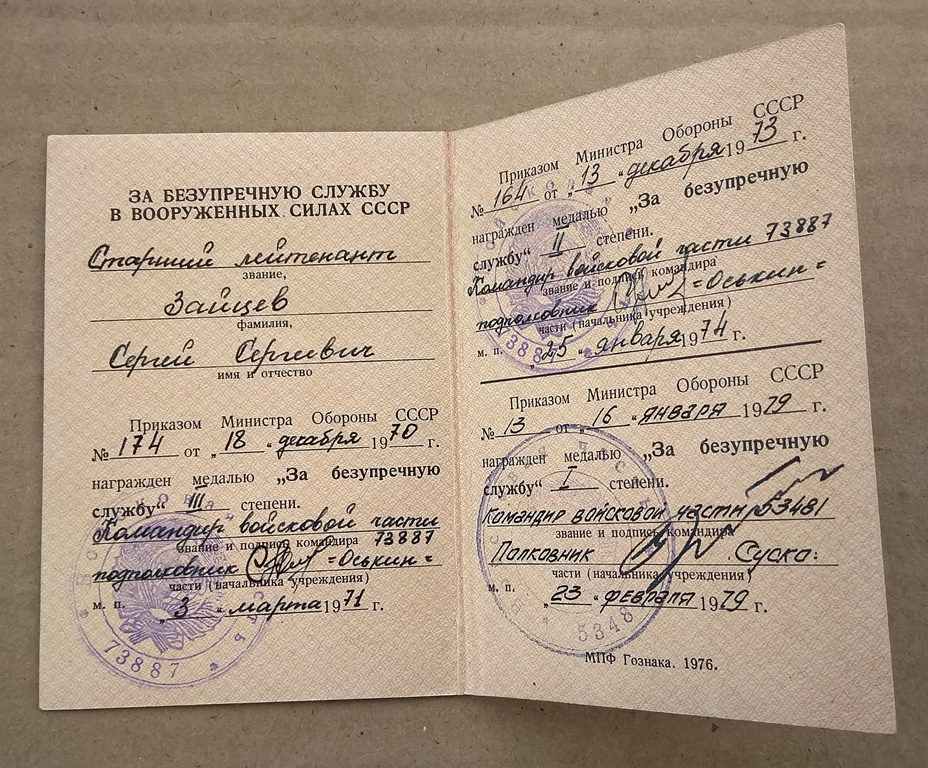 ЗА БЕЗУПРЕЧНУЮ СЛУЖБУ
В ВООРУЖЕННЫХ СИЛАХ СССР
Старший лейтенант
звание,
Зайцев
фамилия,
Сергей Сергеевич
имя и отчество
Приказом Министра Обороны СССР
№ 174 от „18“ декабря 1970 г.
награжден медалью „За безупречную
службу“ III степени.
Командир войсковой части
звание и подпись командира 73887
подполковник =Оськин=
части (начальника учреждения)
м. п. „3“ марта 1971 г.
73887
Приказом Министра Обороны СССР
№ 164 от „13“ декабря 1973 г.
награжден медалью „За безупречную
службу“ II степени.
Командир войсковой части 73887
звание и подпись командира
подполковник =Оськин=
части (начальника учреждения)
м. п. „25“ января 1974 г.
Приказом Министра Обороны СССР
№ 13 от „16“ ЯНВАРЯ 1979 г.
награжден медалью „За безупречную
службу“ I степени.
Командир войсковой части 53481
звание и подпись командира
Полковник Суска:
части (начальника учреждения)
м. п. „23“ ФЕВРАЛЯ 1979 г.
5348
МПФ Гознака. 1976.